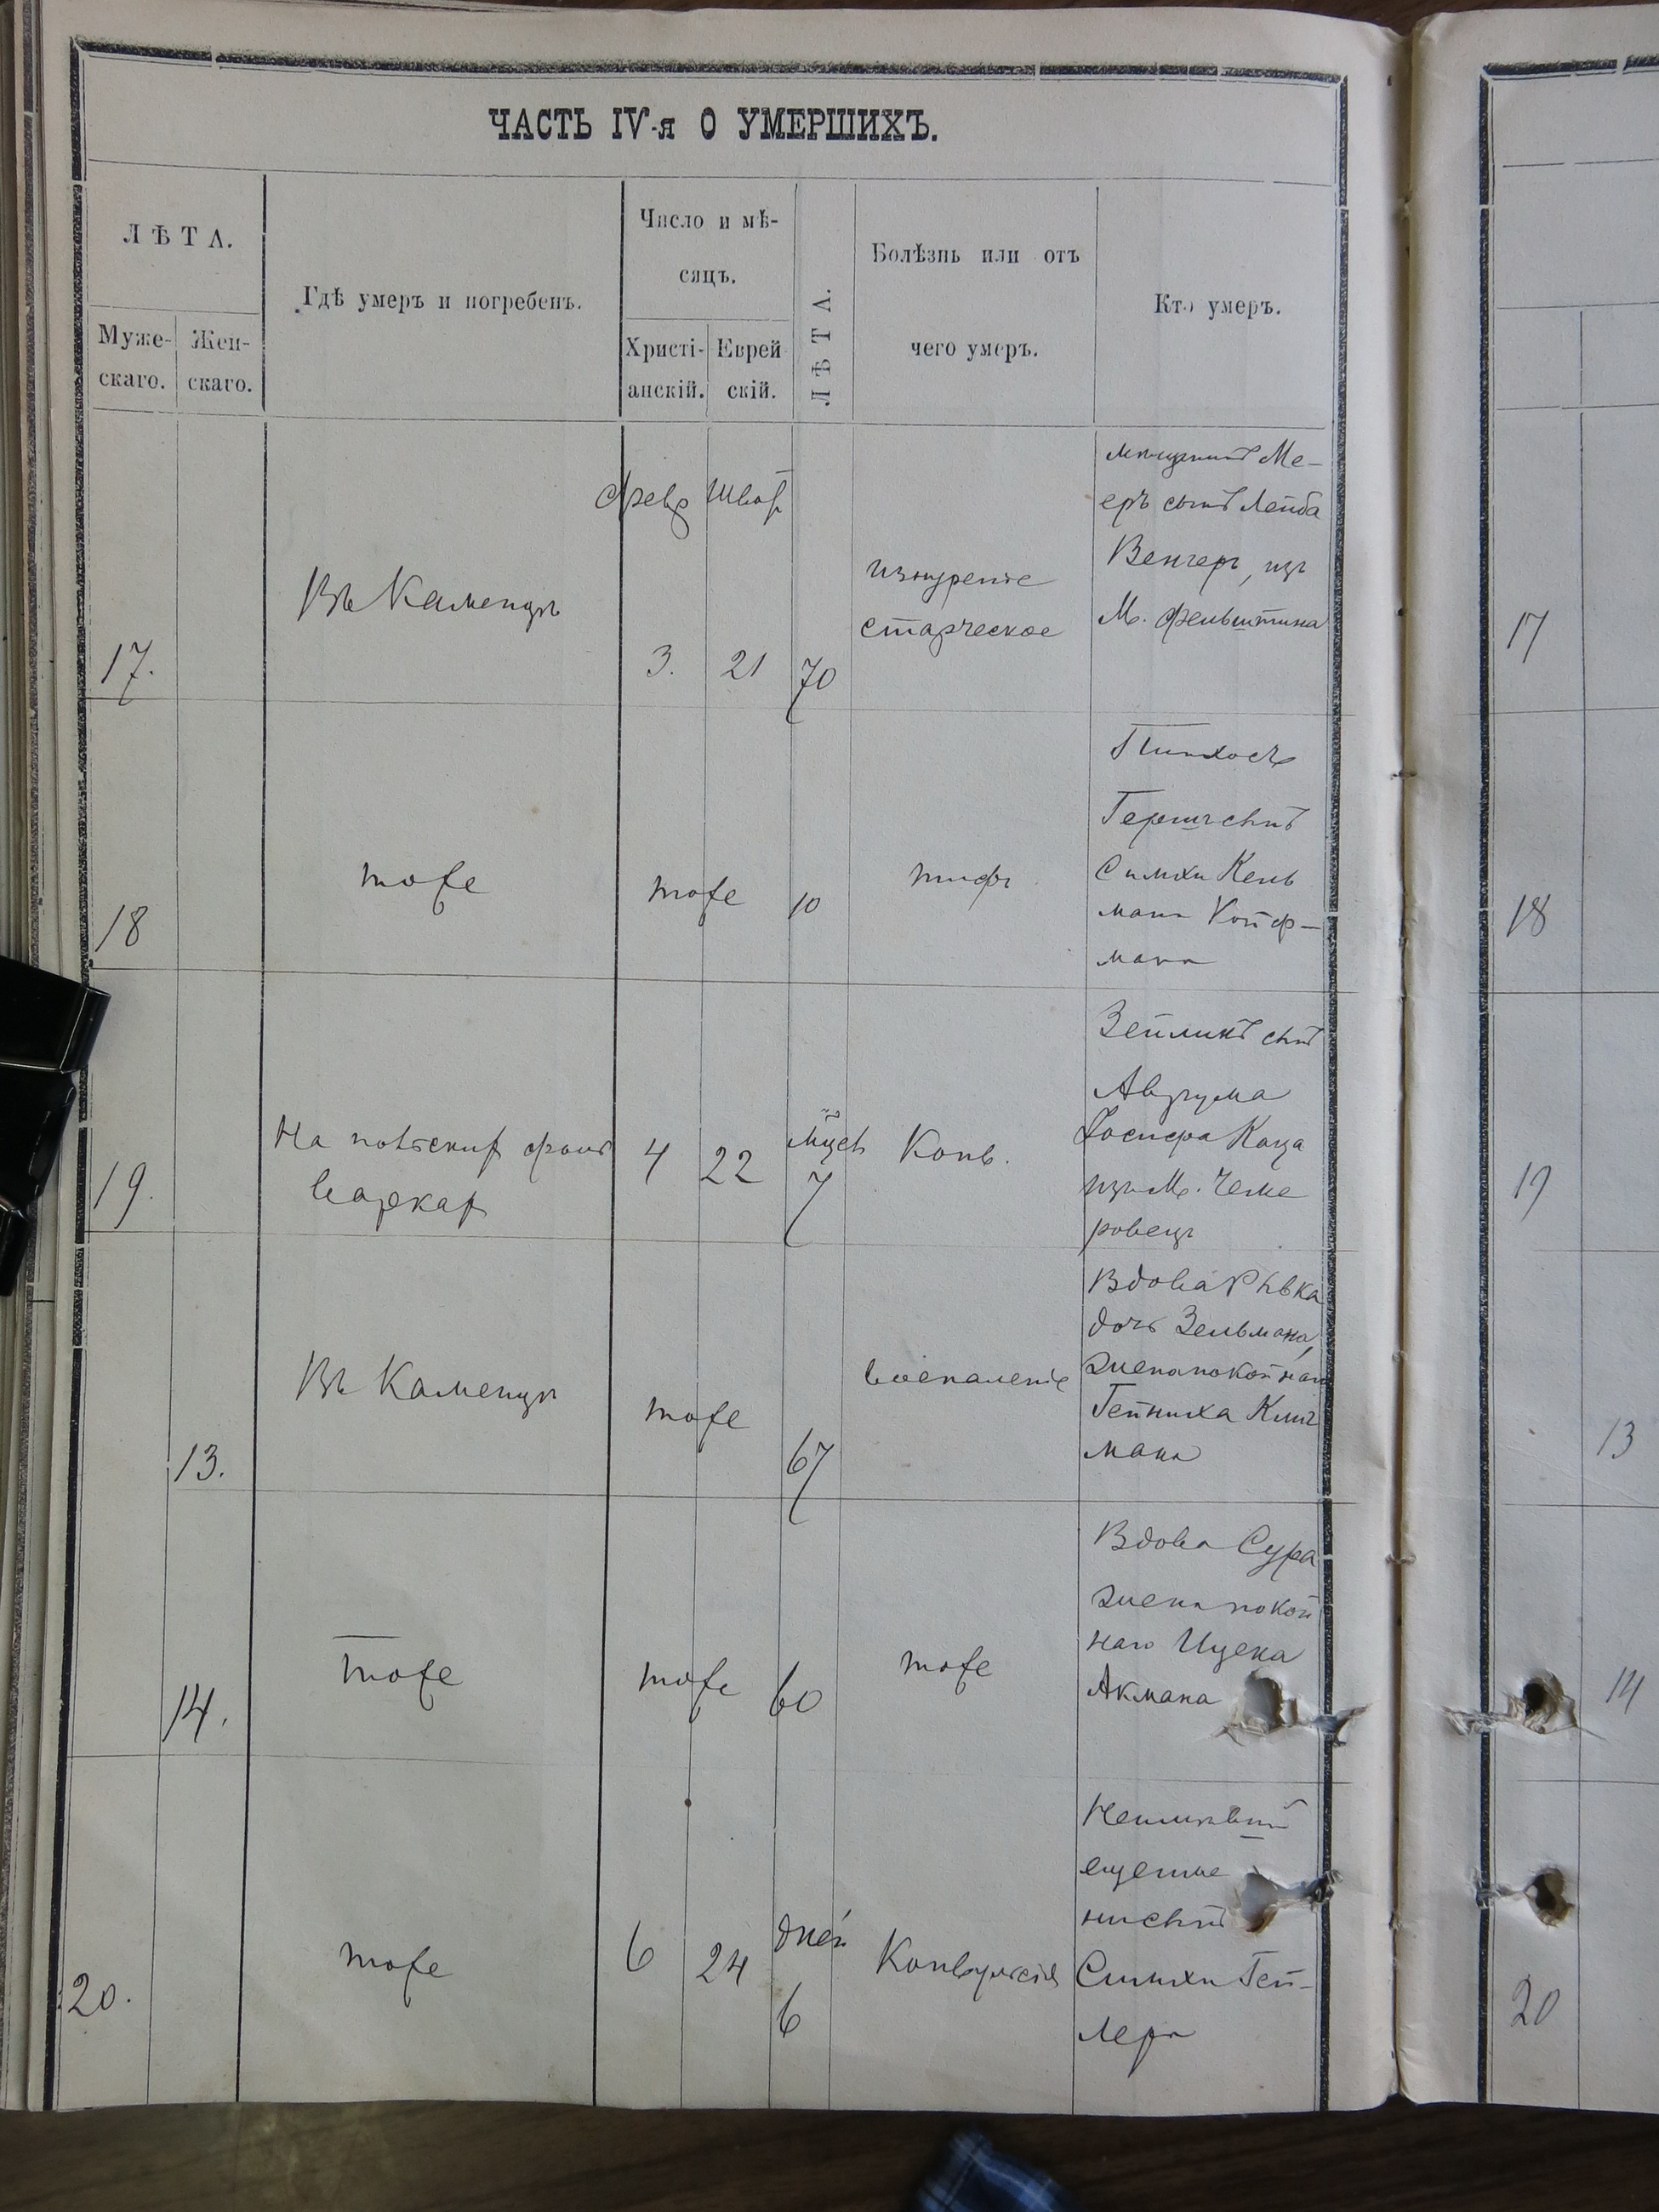 ЧАСТЬ IV-я О УМЕРШИХЪ.
ЛѢТА.
Муже-
скаго.
Жен-
скаго.
Гдѣ умеръ и погребенъ.
Число и мѣ-
сяцъ.
Христі-
анскій.
Еврей
скій.
ЛѢТА.
Болѣзнь или отъ
чего умеръ.
Кто умеръ.
17.
Въ Каменцѣ
Февр
Шват
3.
21
70
изнуреніе
старческое
мѣщанинъ Ме-
еръ сынъ Лейба
Венгеръ, изъ
М. Фельштина
17
18
тоже
тоже
10
тифъ
Пинхосъ
Гершъ снъ
Симхи Кель
мана Койф-
мана
18
19.
На
4
22
мцев
7
Конв.
Зейликъ снъ
Аврума
Иосифа Каца
изъ М. Чеме
ровецъ
19
13.
Въ Каменцѣ
тоже
67
воспаленіе
Вдова Рывка
дочь Зельмана,
жена покойнаго
Гейниха
мана
13
14.
тоже
тоже
60
тоже
Вдова Сура
жена покой
наго Ицека
Акмана
14
20.
тоже
6
24
дней
6
Конвульсія
Неимѣвшій
еще име
ни снъ
Симхи Гей-
лера
20